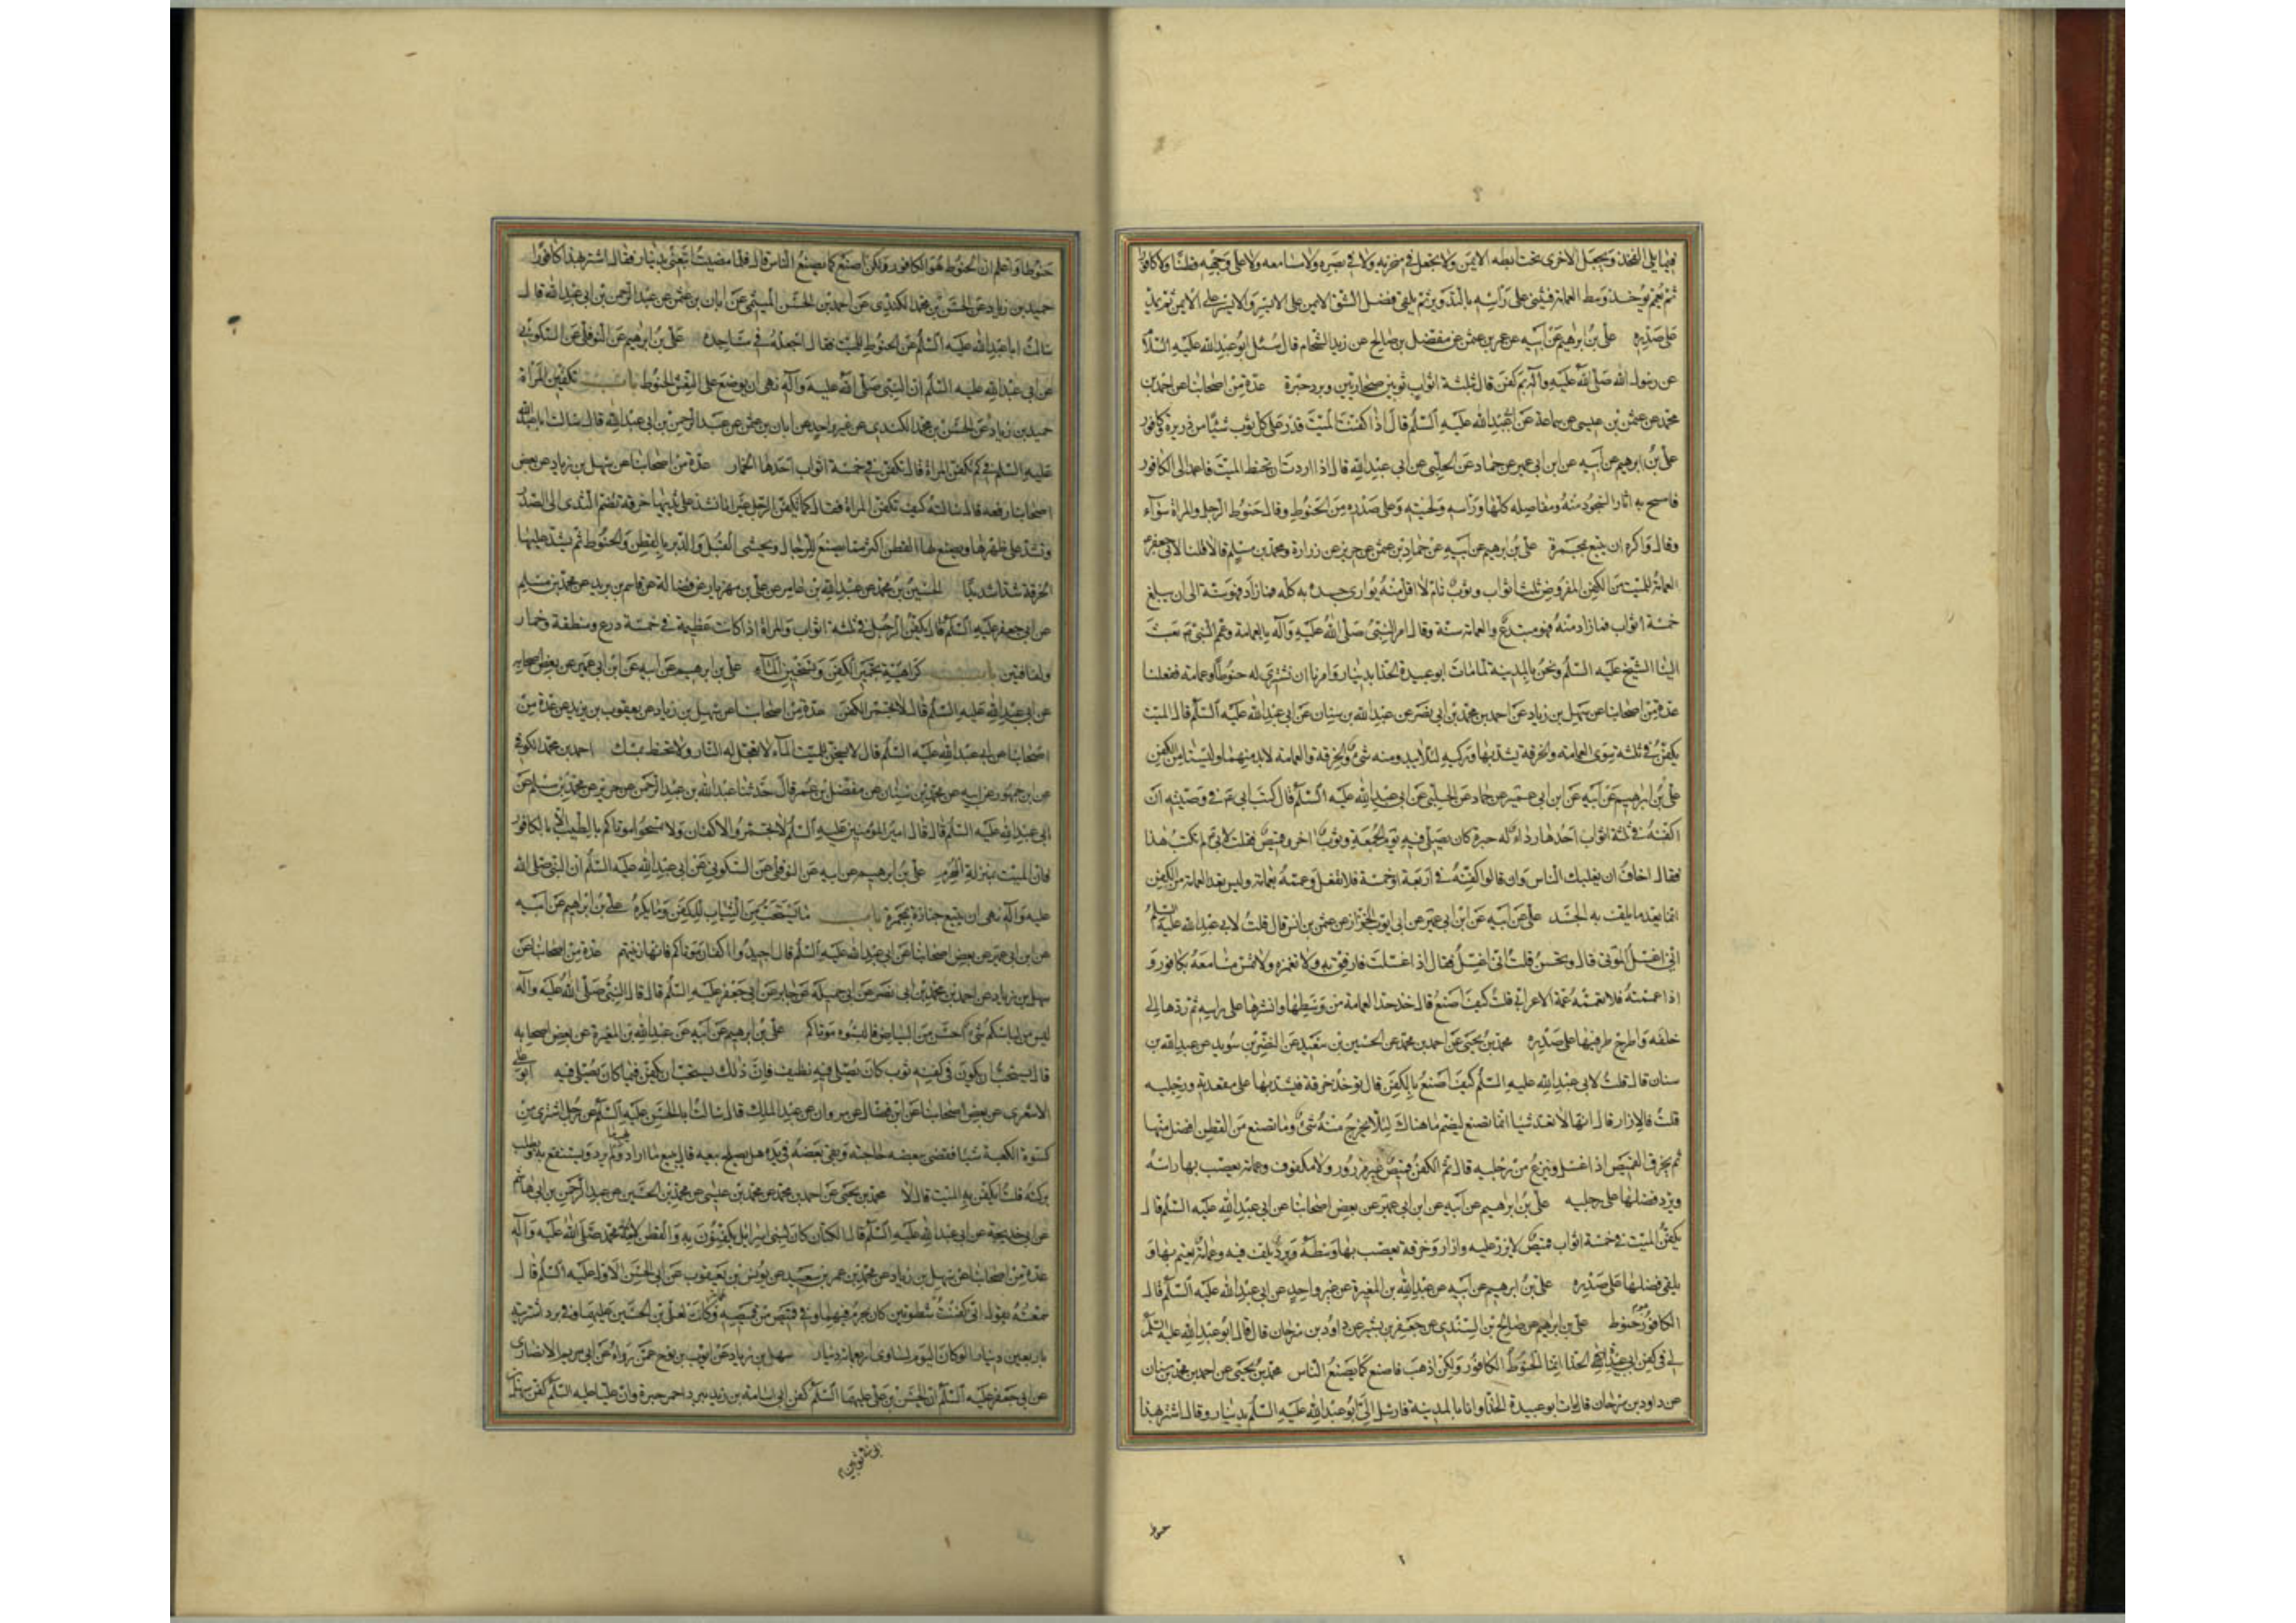 فيما يلي الفخذ ويجعل الاخرى تحت ابطه الايمن ولا يجعل في منخريه ولا في بصره ولا مسامعه ولا على وجهه قطنا ولا كافورا
ثم يعمم يؤخذ وسط العمامة فيثنى على رأسه بالتدوير ثم يلقى فضل الشق الايمن على الايسر والايسر على الايمن ثم يمد
على صدره علي بن ابرهيم عن ابيه عن عمرو بن عثمن عن مفضل بن صالح عن زيد الشحام قال سئل ابو عبد الله عليه السلام
عن رسول الله صلى الله عليه وآله بم كفن قال ثلثة اثواب ثوبين صحاريين وبرد حبرة عدة من اصحابنا عن احمد بن
محمد عن عثمن بن عيسى عن سماعة عن ابي عبد الله عليه السلم قال اذا كفنت الميت فذر على كل ثوب شيئا من ذريرة وكافور
علي بن ابرهيم عن ابيه عن ابن ابي عمير عن حماد عن الحلبي عن ابي عبد الله قال اذا اردت ان تحنط الميت فاعمد الى الكافور
فامسح به اثار السجود منه ومفاصله كلها وراسه ولحيته وعلى صدره من الحنوط وقال حنوط الرجل والمراة سوآء
وقال واكره ان يتبع بمجمرة علي بن ابرهيم عن ابيه عن حماد بن عثمن عن حريز عن زرارة ومحمد بن مسلم قالا قلنا لابي جعفر ع
العمامة للميت من الكفن المفروض ثلث اثواب وثوب تام لا اقل منه يوارى جسده به كله فما زاد فهو سنة الى ان يبلغ
خمسة اثواب فما زاد منه فهو مبتدع والعمامة سنة وقال امر النبي صلى الله عليه وآله بالعمامة وعمم النبي ثم بعث
الينا الشيخ عليه السلم ونحن بالمدينة لما مات ابو عبيدة الحذا بدينار وامرنا ان نشترى له حنوطا وعمامة ففعلنا
عدة من اصحابنا عن سهل بن زياد عن احمد بن محمد بن ابي نصر عن عبد الله بن سنان عن ابي عبد الله عليه السلم قال الميت
يكفن في ثلثة سوى العمامة والخرقة يشد بها وركيه لئلا يبدو منه شئ والخرقة والعمامة لابد منهما وليستا من الكفن
علي بن ابرهيم عن ابيه عن ابن ابي عمير عن حماد عن الحلبي عن ابي عبد الله عليه السلم قال كتب ابي ع في وصيته ان
اكفنه في ثلثة اثواب احدها رداء له حبرة كان يصلي فيه يوم الجمعة وثوب اخر وقميص فقلت لابي لم تكتب هذا
فقال اخاف ان يغلبك الناس وان قالوا كفنه في اربعة او خمسة فلا تفعل وعممه بعمامة وليس تعد العمامة من الكفن
انما يعد ما يلف به الجسد علي عن ابيه عن ابن ابي عمير عن ابي ايوب الخزاز عن عثمن بن انس قال قلت لابي عبد الله عليه السلم
اني اغسل الموتى قال وتحسن قلت اني اغسل فقال اذا غسلت فارفق به ولا تغمزه ولا تمس مسامعه بكافور و
اذا عممته فلا تعممه عمة الاعرابي قلت كيف اصنع قال خذ حد العمامة من وسطها وانشرها على راسه ثم ردها الى
خلفه واطرح طرفيها على صدره محمد بن يحيى عن احمد بن محمد عن الحسين بن سعيد عن النضر بن سويد عن عبد الله بن
سنان قال قلت لابي عبد الله عليه السلم كيف اصنع بالكفن قال تؤخذ خرقة فيشد بها على مقعدته ورجليه
قلت فالازار قال انها لا تعد شيئا انما تصنع ليضم ما هناك لئلا يخرج منه شئ وما تصنع من القطن افضل منها
ثم يخرق القميص اذا غسل وينزع من رجليه قال ثم الكفن قميص غير مزرور ولا مكفوف وعمامة يعصب بها راسه
ويرد فضلها على رجليه علي بن ابرهيم عن ابيه عن ابن ابي عمير عن بعض اصحابنا عن ابي عبد الله عليه السلم قال
يكفن الميت في خمسة اثواب قميص لا يزر عليه وازار وخرقة يعصب بها وسطه وبرد يلف فيه وعمامة يعتم بها و
يلقى فضلها على صدره علي بن ابرهيم عن ابيه عن عبد الله بن المغيرة عن غير واحد عن ابي عبد الله عليه السلم قال
الكافور هو حنوط علي بن ابرهيم عن صالح بن السندي عن جعفر بن بشير عن داود بن سرحان قال قال ابو عبد الله عليه السلم
لي في كفن ابي عبيدة الحذا انما الحنوط الكافور ولكن اذهب فاصنع كما يصنع الناس محمد بن يحيى عن احمد بن محمد بن سنان
عن داود بن سرحان قال مات ابو عبيدة الحذا وانا بالمدينة فارسل الي ابو عبد الله عليه السلم بدينار وقال اشتر بهذا
حنوط
حنوطا واعلم ان الحنوط هو الكافور ولكن اصنع كما يصنع الناس قال فلما مضيت اتبعني بدينار فقال اشتر بهذا كافورا
حميد بن زياد عن الحسن بن محمد الكندي عن احمد بن الحسن الميثمي عن ابان بن عثمن عن عبد الرحمن بن ابي عبد الله قال
سالت ابا عبد الله عليه السلم عن الحنوط للميت فقال اجعله في مساجده علي بن ابرهيم عن النوفلي عن السكوني
عن ابي عبد الله عليه السلم ان النبي صلى الله عليه وآله نهى ان يوضع على النعش الحنوط باب تكفين المراة
حميد بن زياد عن الحسن بن محمد الكندي عن غير واحد عن ابان بن عثمن عن عبد الرحمن بن ابي عبد الله قال سالت ابا عبد الله
عليه السلم في كم تكفن المراة قال تكفن في خمسة اثواب احدها الخمار عدة من اصحابنا عن سهل بن زياد عن بعض
اصحابنا رفعه قال سالته كيف تكفن المراة فقال كما يكفن الرجل غير انا نشد على ثدييها خرقة تضم الثدي الى الصدر
وتشد على ظهرها ويصنع لها القطن اكثر مما يصنع للرجال ويحشى القبل والدبر بالقطن والحنوط ثم يشد عليها
الخرقة شدا شديدا الحسين بن محمد عن عبد الله بن عامر عن علي بن مهزيار عن فضالة عن قاسم بن بريد عن محمد بن مسلم
عن ابي جعفر عليه السلم قال يكفن الرجل في ثلثة اثواب والمراة اذا كانت عظيمة في خمسة درع ومنطقة وخمار
ولفافتين باب كراهية تجمير الكفن وتسخين الماء علي بن ابرهيم عن ابيه عن ابن ابي عمير عن بعض اصحابه
عن ابي عبد الله عليه السلم قال لا تجمر الكفن عدة من اصحابنا عن سهل بن زياد عن يعقوب بن يزيد عن عدة من
اصحابنا عن ابي عبد الله عليه السلم قال لا يسخن للميت المآء لا تعجل له النار ولا تحنط بمسك احمد بن محمد الكوفي
عن ابن جمهور عن ابيه عن محمد بن سنان عن مفضل بن عمر قال حدثنا عبد الله بن عبد الرحمن عن حريز عن محمد بن مسلم عن
ابي عبد الله عليه السلم قال قال امير المؤمنين عليه السلم لا تجمروا الاكفان ولا تمسحوا موتاكم بالطيب الا بالكافور
فان الميت بمنزلة المحرم علي بن ابرهيم عن ابيه عن النوفلي عن السكوني عن ابي عبد الله عليه السلم ان النبي صلى الله
عليه وآله نهى ان يتبع جنازة بمجمرة باب ما يستحب من الثياب للكفن وما يكره علي بن ابرهيم عن ابيه
عن ابن ابي عمير عن بعض اصحابنا عن ابي عبد الله عليه السلم قال اجيدوا اكفان موتاكم فانها زينتهم عدة من اصحابنا عن
سهل بن زياد عن احمد بن محمد بن ابي نصر عن ابي جميلة عن جابر عن ابي جعفر عليه السلم قال قال النبي صلى الله عليه وآله
ليس من لباسكم شئ احسن من البياض فالبسوه موتاكم علي بن ابرهيم عن ابيه عن عبد الله بن المغيرة عن بعض اصحابه
قال يستحب ان يكون في كفنه ثوب كان يصلي فيه نظيف فان ذلك يستحب ان يكفن فيما كان يصلي فيه ابو علي
الاشعري عن بعض اصحابنا عن ابن فضال عن مروان عن عبد الملك قال سالت ابا الحسن عليه السلم عن رجل اشترى من
كسوة الكعبة شيئا فقضى ببعضه حاجته وبقي بعضه في يده هل يصلح بيعه قال يبيع ما اراد ويهب ما لم يرد ويستنفع به ويطلب
بركته قلت ايكفن به الميت قال لا محمد بن يحيى عن احمد بن محمد عن محمد بن عيسى عن محمد بن الحسين عن عبد الرحمن بن ابي هاشم
عن ابي خديجة عن ابي عبد الله عليه السلم قال الكتان كان لبني اسرائيل يكفنون به والقطن لامة محمد صلى الله عليه وآله
عدة من اصحابنا عن سهل بن زياد عن محمد بن عمرو بن سعيد عن يونس بن يعقوب عن ابي الحسن الاول عليه السلم قال
سمعته يقول اني كفنت ابي في ثوبين شطويين كان يحرم فيهما وفي قميص من قمصه وعمامة كانت لعلي بن الحسين عليهما وفي برد اشتريته
باربعين دينارا لو كان اليوم لساوى اربعمائة دينار سهل بن زياد عن ايوب بن نوح عمن رواه عن ابي مريم الانصارى
عن ابي جعفر عليه السلم ان الحسن بن علي عليهما السلم كفن اسامة بن زيد ببرد احمر حبرة وان عليا عليه السلم كفن سهل بن